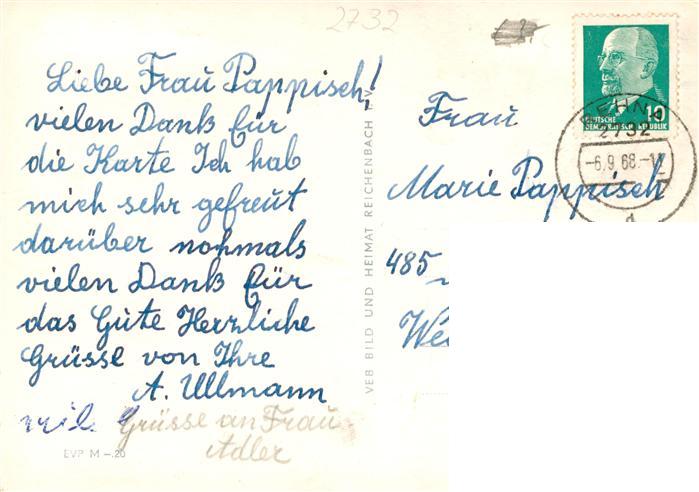 2732
Liebe Frau Pappisch!
vielen Dank für
die Karte Ich hab
mich sehr gefreut
darüber nohmals
vielen Dank für
das Gute Herzliche
Grüsse von Ihre
A. Ullmann
Grüsse an Frau
Adler
EVP M –.20
VEB BILD UND HEIMAT REICHENBACH
Frau
Marie Pappisch
485
We
10
DEUTSCHE
DEMOKRATISCHE REPUBLIK
2732
-6.9.68.-17